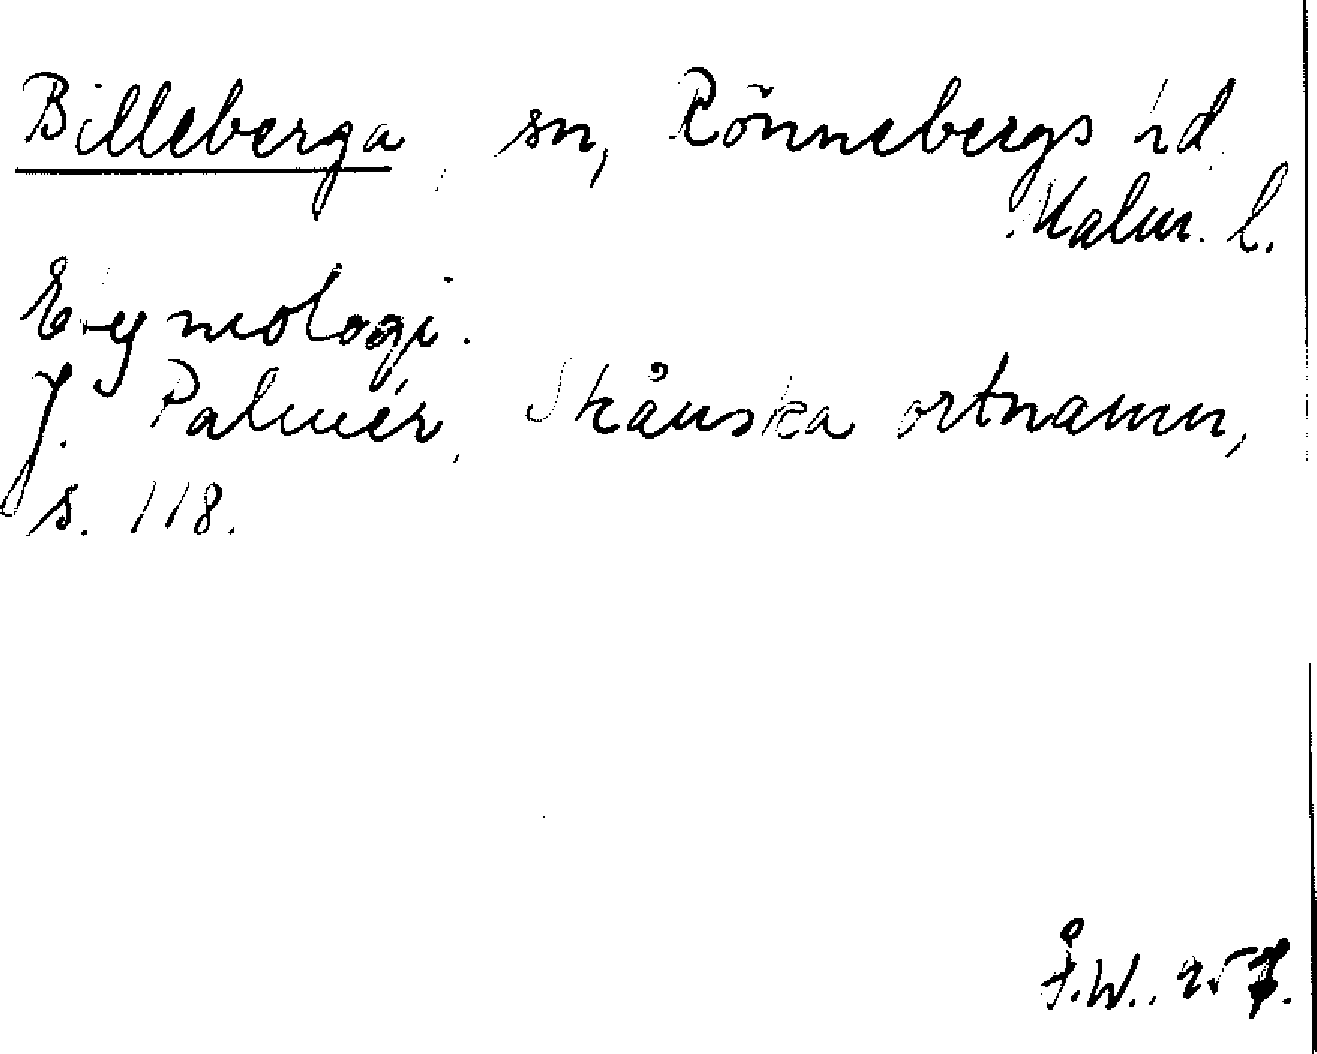 Billeberga sn, Rönnebergs hd.
Malm. l.
Etymologi.
J. Palmér, Skånska ortnamn,
s. 118.
Å.W..